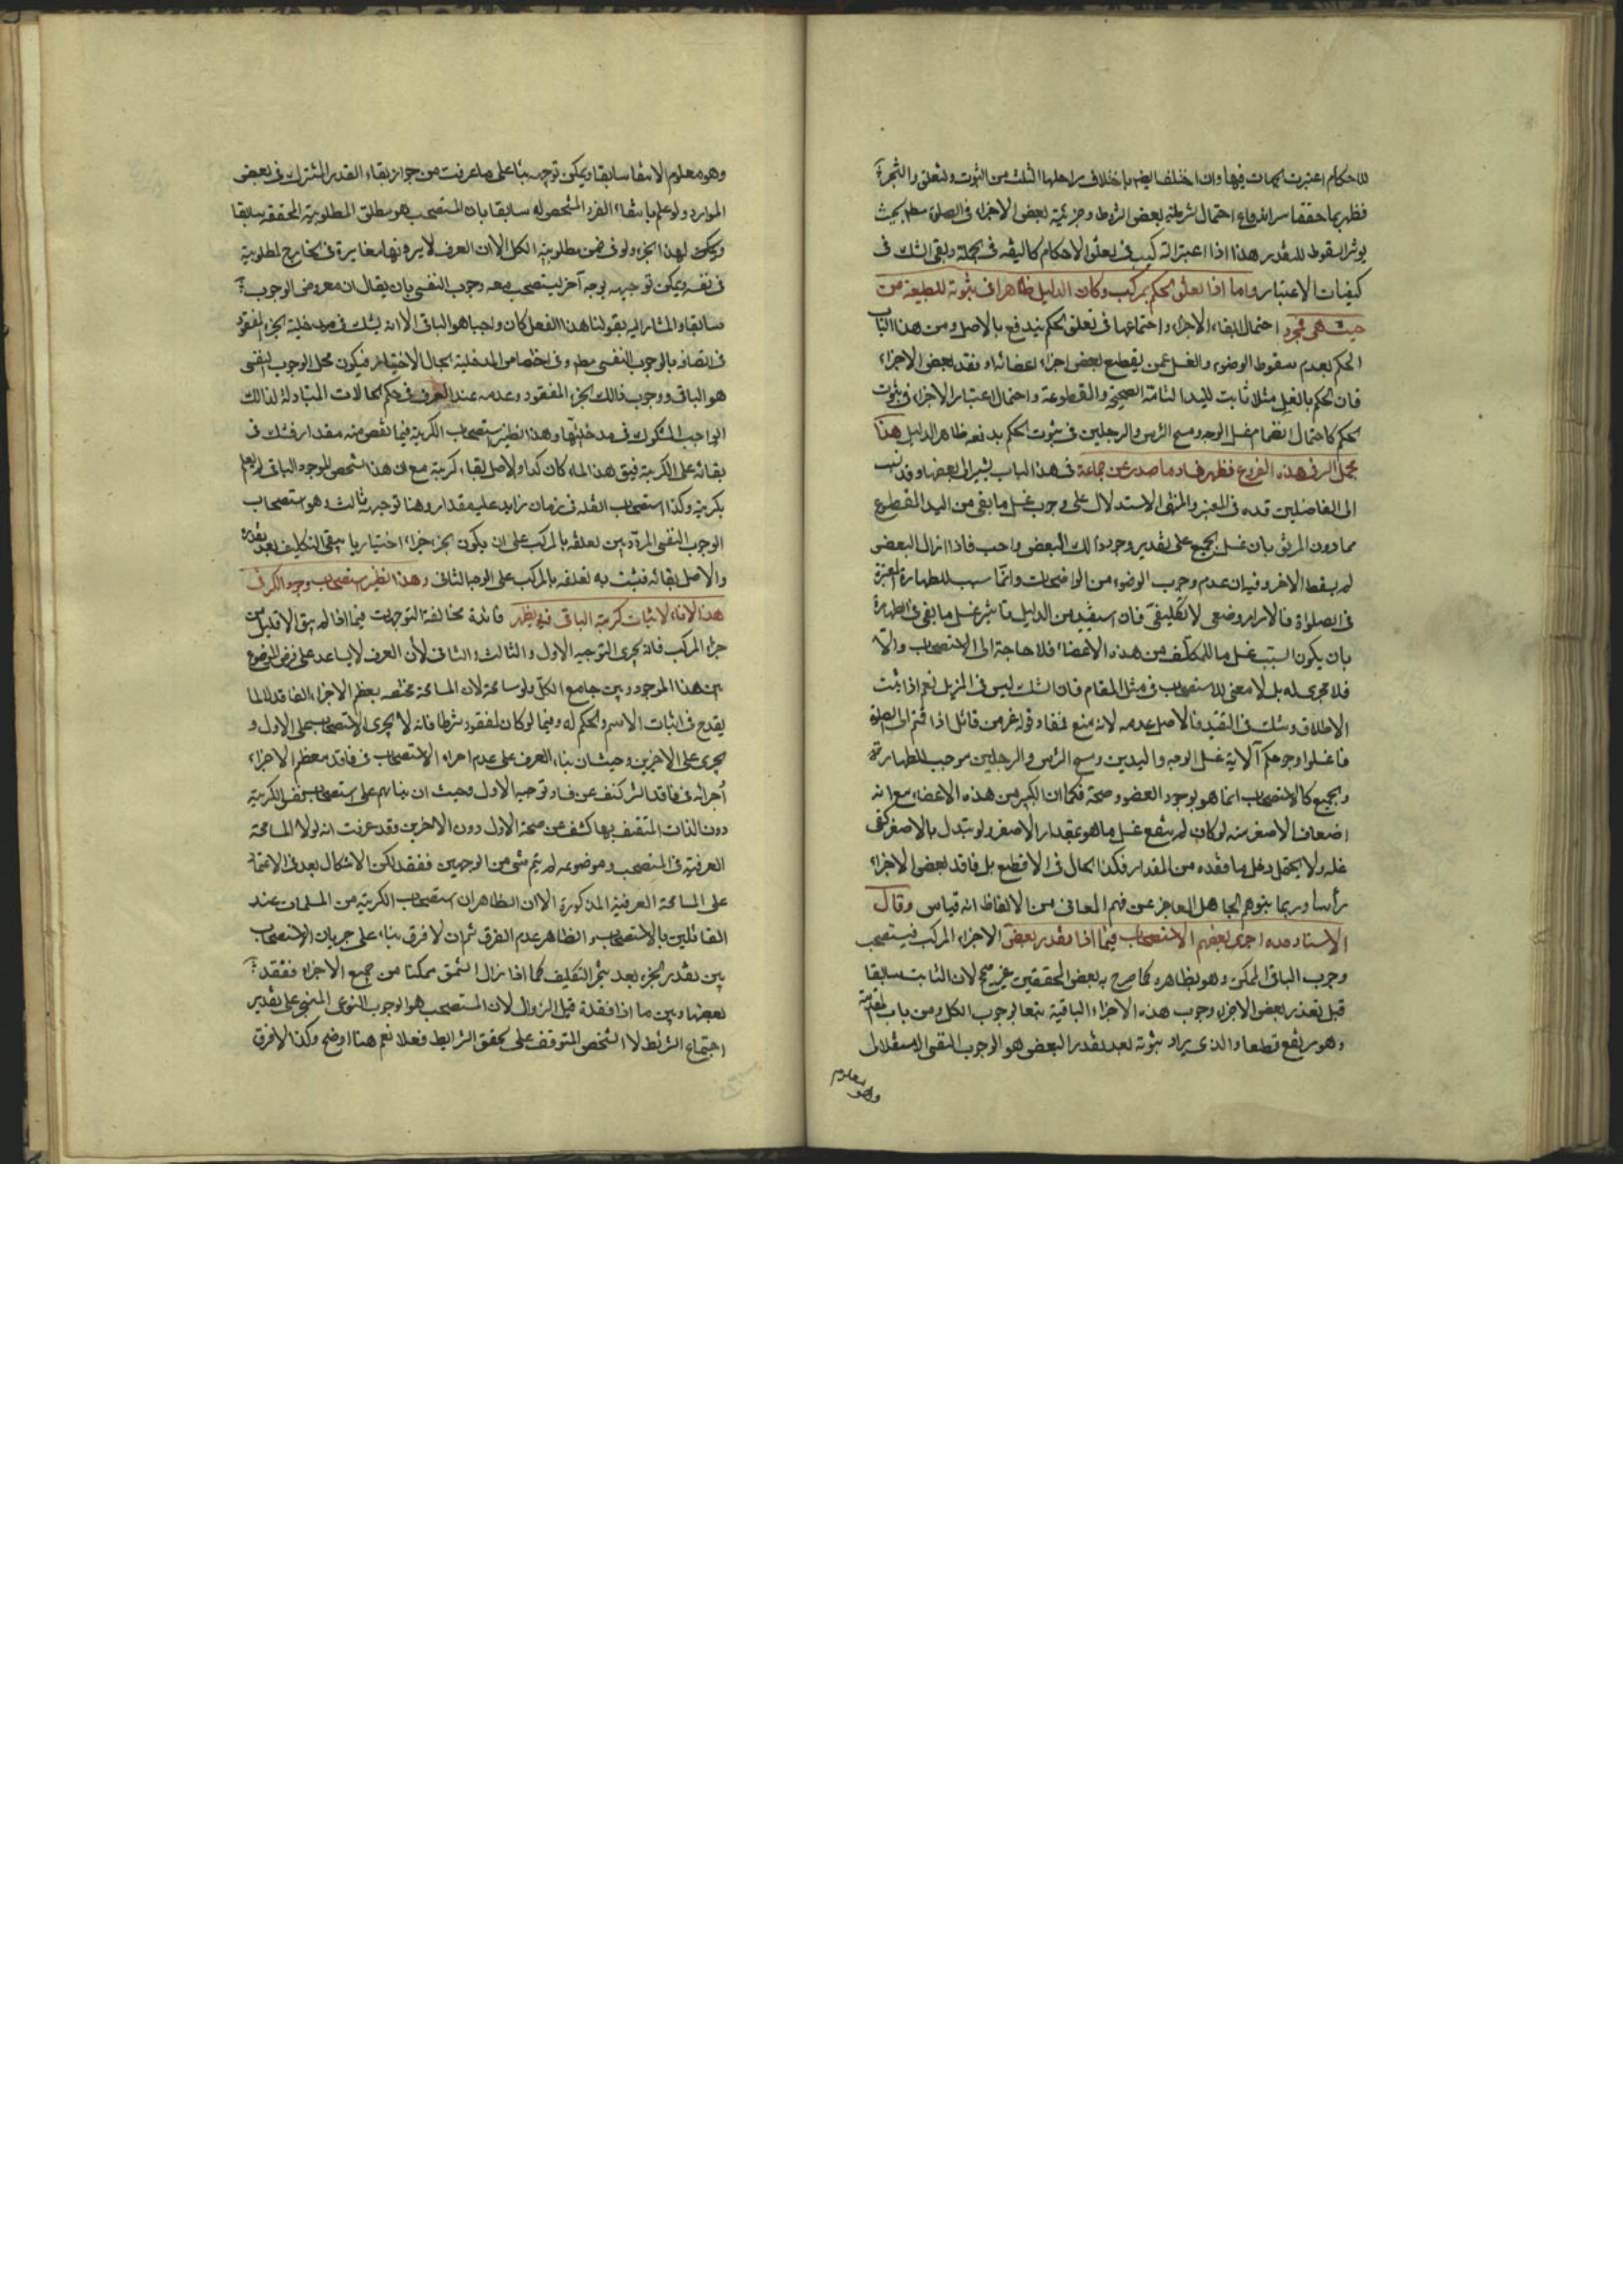 للاحكام اعتبرت الجهات فيها وان اختلف ايضا باختلاف مراحلها الثلث من الثبوت والتعلق والتنجز
فظهر بما حققنا سر اندفاع احتمال شرطية بعض الشروط وجزئية بعض الاجزاء في الصلوة مطم بحيث
يوثر السقوط للتعذر هذا اذا اعتبر التركيب في تعلق الاحكام كاليقه في الجملة وبقي الشك في
كيفيات الاعتبار واما اذا تعلق الحكم بمركب وكان الدليل ظاهرا في ثبوته للطبيعة من
حيث هي فمجرد احتمال ابقاء الاجزاء واجتماعها في تعلق الحكم يندفع بالاصل ومن هذا الباب
الحكم بعدم سقوط الوضوء والغسل عمن يقطع بعض اجزاء اعضائه او فقد بعض الاجزاء
فان الحكم بالغسل مثلا ثابت لليد التامة الصحيحة والمقطوعة واحتمال اعتبار الاجزاء في ثبوت
الحكم كاحتمال انضمام غسل الوجه ومسح الراس والرجلين في ثبوت الحكم يدفعه ظاهر الدليل هذا
مجمل السر في هذه الفروع فظهر فساد ما صدر عن جماعة في هذا الباب يشير الى بعضها وقد نسب
الى الفاضلين قده في المعتبر والمنتهى الاستدلال على وجوب غسل ما بقي من اليد المقطوع
مما دون المرفق بان غسل الجميع على تقدير وجود ذلك البعض واجب فاذا زال البعض
لم يسقط الاخر وفيه ان عدم وجوب الوضوء من الواضحات وانما سبب للطهارة المعتبرة
في الصلواة فالامر امر وضعي لا تكليفي فان استفيد من الدليل تاثير غسل ما بقي في الطهارة
بان يكون السبب غسل ما للمكلف من هذه الاعضاء فلا حاجة الى الاستصحاب والا
فلا مجرى له بل لا معنى للاستصحاب في مثل المقام فان الشك ليس في المزيل نعم اذا ثبت
الاطلاق وشك في التقييد فالاصل عدمه لانه منع فمفاد قوله عز من قائل اذا قمتم الى الصلوة
فاغسلوا وجوهكم الاية غسل الوجه واليدين ومسح الراس والرجلين موجب للطهارة
والجميع كالاستصحاب انما هو بوجود العضو وصحته فكما ان الكبير من هذه الاعضاء مع انه
اضعاف الاصغر منه لو كان لم ينفع غسل ما هو بمقدار الاصغر ولو تبدل بالاصغر كفى
غسله ولا يحتمل دخل ما فقده من المقدار فكذا الحال في الاقطع بل فاقد بعض الاجزاء
رأسا وربما يتوهم الجاهل العاجز عن فهم المعاني من الالفاظ انه قياس وقال
الاستاد مده اجرى بعضهم الاستصحاب فيما اذا تعذر بعض الاجزاء المركب فيستصحب
وجوب الباقي الممكن وهو بظاهره كما صرح به بعض المحققين غير صحيح لان الثابت سابقا
قبل تعذر بعض الاجزاء وجوب هذه الاجزاء الباقية تبعا لوجوب الكل ومن باب المقدمة
وهو مرتفع قطعا والذي يراد ثبوته بعد تعذر البعض هو الوجوب النفسي الاستقلالي
وهو معلوم
وهو معلوم الانتفاء سابقا ويمكن توجيهه بناء على ما عرفت من جواز بقاء القدر المشترك في بعض
الموارد ولو علم بانتفاء الفرد المشخص له سابقا بان المستصحب هو مطلق المطلوبية المحققة سابقا
لهذا الجزء ولو في ضمن مطلوبية الكل الا ان العرف لا يرونها مغايرة في الخارج لمطلوبية
في نفسه ويمكن توجيهه بوجه آخر يستصحب معه وجوب النفسي بان يقال ان معروض الوجوب
سابقا والمشار اليه بقولنا هذا الفعل كان واجبا هو الباقي الا انه يشك في مدخلية الجزء المفقود
في اتصافه بالوجوب النفسي مطم وفي اختصاص المدخلية بحال الاختيار فيكون محل الوجوب النفسي
هو الباقي ووجوب ذلك الجزء المفقود وعدمه عند العرف في حكم الحالات المتبادلة لذلك
الواجب المشكوك في مدخليتها وهذا نظير استصحاب الكرية فيما نقص منه مقدار فشك في
بقائه على الكرية فيق هذا الماء كان كذا والاصل بقاء كريته مع ان هذا الشخص الموجود الباقي لم يعلم
بكريته وكذا استصحاب القلة في زمان زايد عليه مقدار وهنا توجيه ثالث وهو استصحاب
الوجوب النفسي المردد بين تعلقه بالمركب على ان يكون الجزء جزاء اختياريا يبقى التكليف بعد تعذره
والاصل بقائه فيثبت به تعلقه بالمركب على الوجه الثاني وهذا نظير استصحاب وجود الكر في
هذا الاناء لاثبات كرية الباقي فيه يظهر فائدة مخالفة التوجيهات فيما اذا لم يبق الا قليل من
اجزاء المركب فانه يجري التوجيه الاول والثالث والثاني لان العرف لا يساعد على فرض الموضوع
بين هذا الموجود وبين جامع الكل ولو مسامحة لان المسامحة مختصه بمعظم الاجزاء الفاقد لما لا
يقدح في اثبات الاسم والحكم له وفيما لو كان المفقود شرطا فانه لا يجري الاستصحاب على الاول و
يجري على الاخيرين وحيث ان بناء العرف على عدم اجراء الاستصحاب في فاقد معظم الاجزاء
و اجرائه في فاقد الشرط كشف عن فساد توجيه الاول وحيث ان بنائهم على استصحاب نفس الكرية
دون الذات المتصف بها كشف من صحة الاول دون الاخرين وقد عرفت انه لولا المسامحة
العرفية في المستصحب وموضوعه لم يتم شئ من الوجهين ففقد لكن الاشكال بعد في الاعتماد
على المسامحة العرفية المذكورة الا ان الظاهر ان استصحاب الكرية من المسلمات عند
القائلين بالاستصحاب والظاهر عدم الفرق ثم ان لا فرق بناء على جريان الاستصحاب
بين تعذر الجزء بعد تنجز التكليف كما اذا زال الشمس متمكنا من جميع الاجزاء ففقد
بعضها وبين ما اذا فقده قبل الزوال لان المستصحب هو الوجوب النوعي المنجز على تقدير
اجتماع الشرائط لا الشخصي المتوقف على تحقق الشرائط فعلا نعم هنا اوضح وكذا لا فرق